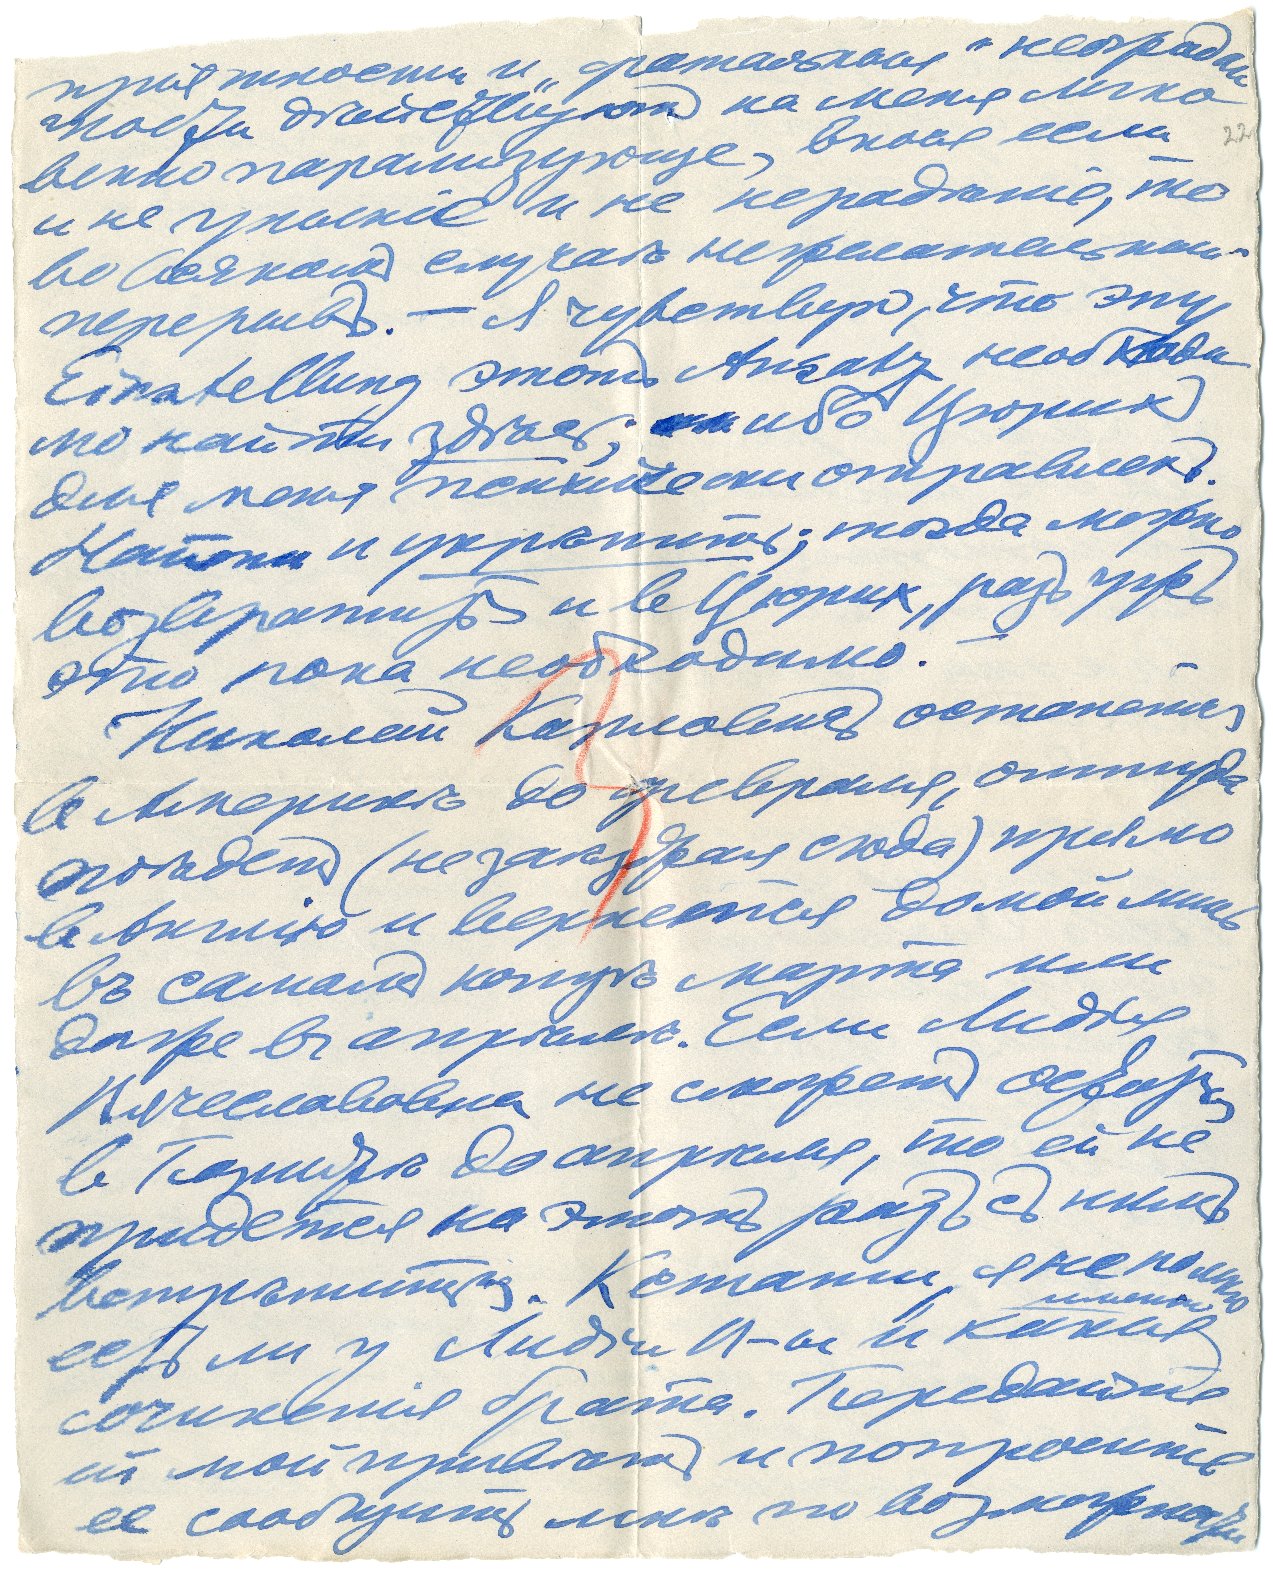 пріятности и „фатальныя" неотрадн
ности дѣйствуютъ на меня мгно
22
венно парализующе, внося если
и не уныніе и не нерадѣніе, то
во всякомъ случаѣ нежелательный
перерывъ. — Я чувствую, что эту
Einstellung этотъ Ansatz необходи
мо найти здѣсь; ибо Цюрихъ
для меня психически отравленъ.
Найти и укрѣпить; тогда можно
возвратиться и в Цюрих, разъ ужъ
это пока необходимо. —
Николай Карловичъ останется
в Америкѣ до февраля, оттуда
поѣдетъ (не заѣзжая сюда) прямо
в Англію и вернется домой лишь
въ самомъ концѣ марта или
даже въ апрѣлѣ. Если Лидія
Вячеславовна не сможетъ остаться
в до апрѣля, то ей не
придется на этотъ разъ съ нимъ
встрѣтиться. Кстати, я не помню
есть ли у Лидіи В-ы и какія
именно
сочиненія брата. Передайте
ей мой привѣтъ и попросите
ее сообщить мнѣ по возможности